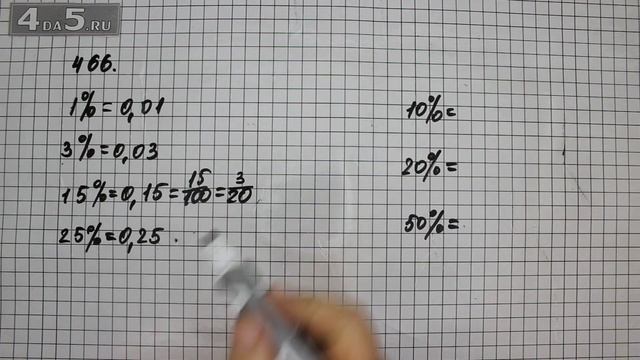 4DA5.RU
466.
1% = 0,01
3% = 0,03
15% = 0,15 = 15/100 = 3/20
25% = 0,25
10% =
20% =
50% =